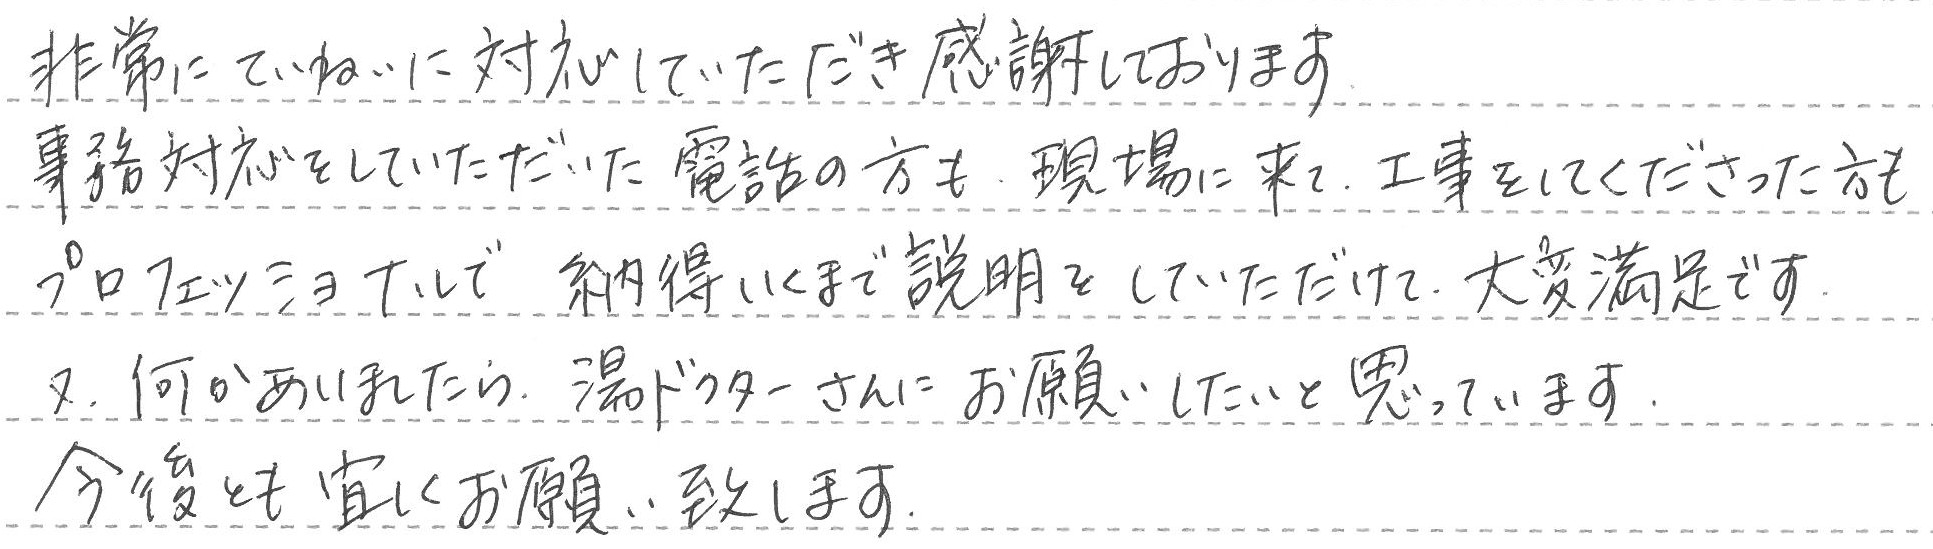 非常にていねいに対応していただき感謝しております.
事務対応をしていただいた電話の方も.現場に来て.工事をしてくださった方も
プロフェッショナルで 納得いくまで説明をしていただけて.大変満足です.
又.何かありましたら.湯ドクターさんにお願いしたいと思っています.
今後とも宜しくお願い致します.